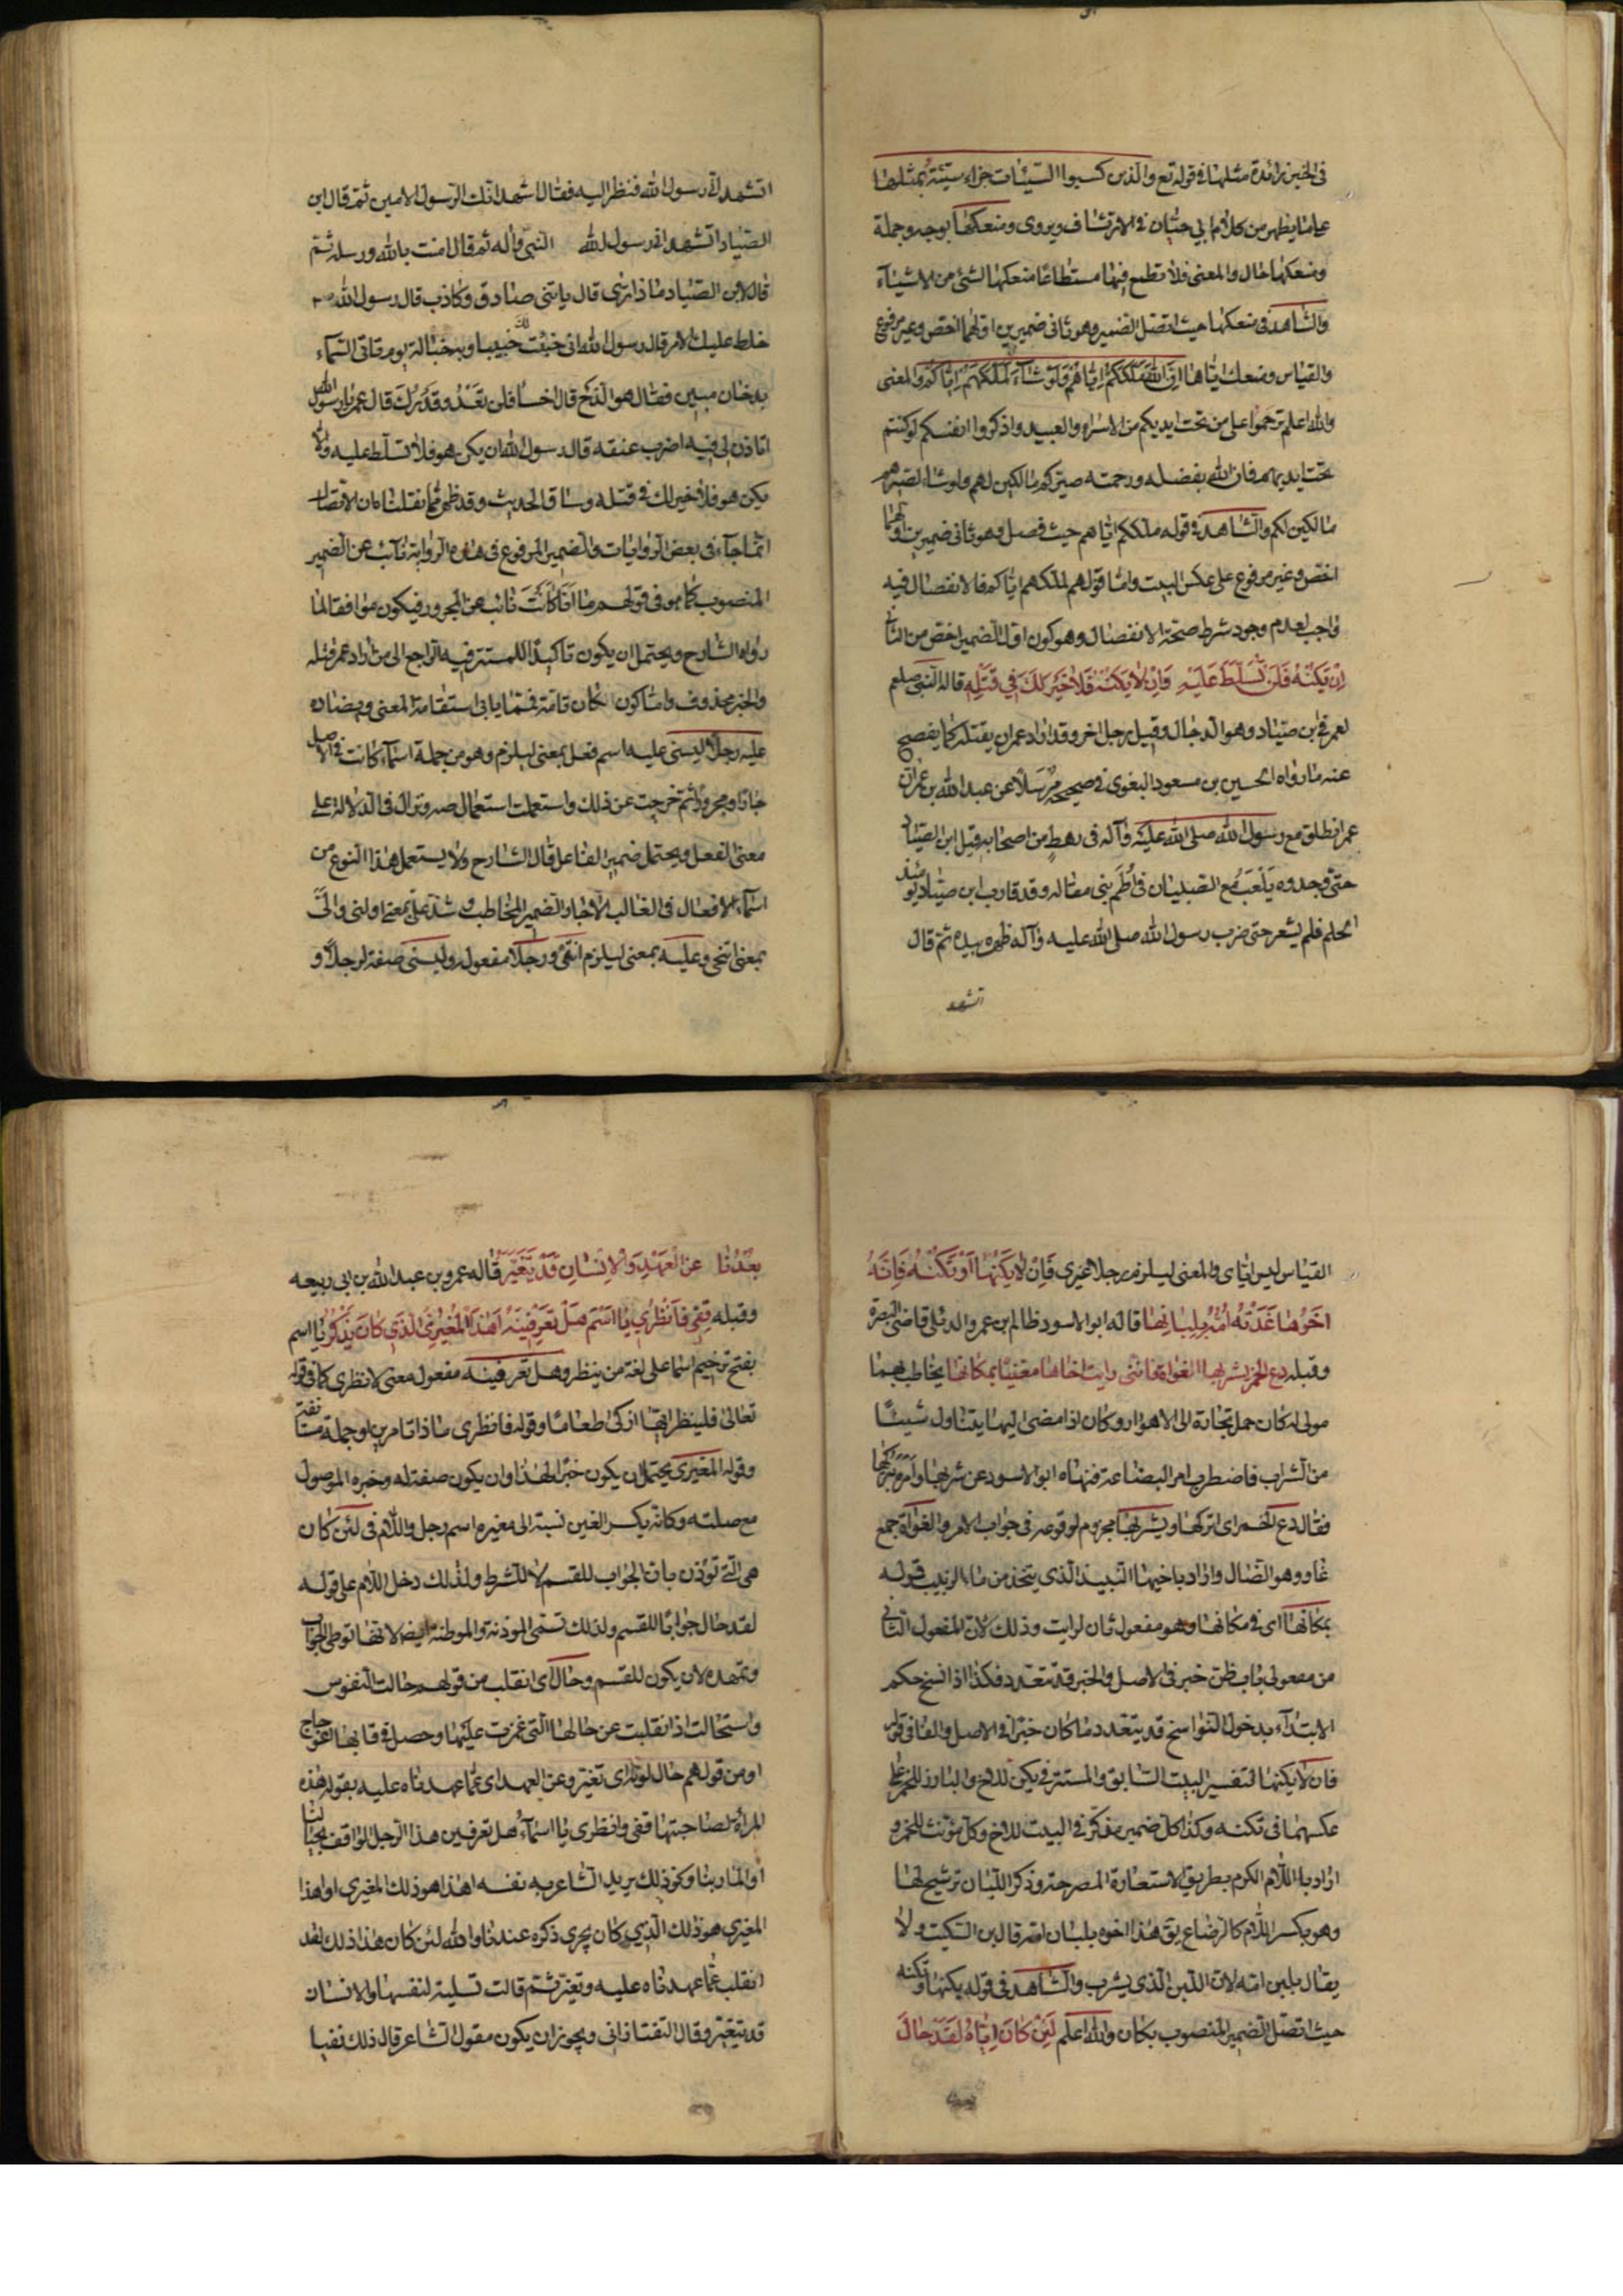 فى الخبر زائدة مثلها فى قوله تع والذين كسبوا السيئات جزاء سيئة بمثلها
على ما يظهر من كلام ابي حيان فى الارتشاف ويروى ومنعكها بوجه وجملة
ومنعكها حال والمعنى فلا تطمع فيها مستطاعا منعكها لشئ من الاشيآء
والشاهد فى منعكها حيث اتصل الضمير وهو ثانى ضميرين اولهما اخص وغير مرفوع
والقياس ومنعك اياها ان الله ملككم اياهم ولو شآء لملكهم اياكم والمعنى
والله اعلم ترحموا على من تحت ايديكم من الاسراء والعبيد واذكروا انفسكم لو كنتم
تحت ايديهم فان الله بفضله ورحمته صيركم مالكين لهم ولو شاء لصيرهم
مالكين لكم والشاهد فى قوله ملككم اياهم حيث فصل وهو ثانى ضميرين اولهما
اخص وغير مرفوع على عكس البيت واما قولهم لملكهم اياكم فالانفصال فيه
واجب لعدم وجود شرط صحة الانفصال وهو كون اول الضمير اخص من الثانى
ان يكنه فلن تسلط عليه وان لا يكنه فلا خير لك في قتله قاله النبى صلعم
لعمر فى ابن صياد وهو الدجال وقيل رجل اخر وقد اراد عمر ان يقتله كما يفصح
عنه ما رواه الحسين بن مسعود البغوى فى صحيحه مرسلا عن عبد الله بن عمر ان
عمر انطلق مع رسول الله صلى الله عليه وآله فى رهط من اصحابه قبل ابن الصياد
حتى وجدوه يلعب مع الصبيان فى اطم بنى مغاله وقد قارب ابن صياد يومئذ
الحلم فلم يشعر حتى ضرب رسول الله صلى الله عليه وآله ظهره بيده ثم قال
اتشهد
اتشهد انى رسول الله فنظر اليه فقال اشهد انك الرسول الامين ثم قال ابن
الصياد اتشهد انى رسول الله النبى وآله ثم قال امنت بالله ورسله ثم
قال لابن الصياد ماذا ترى قال ياتنى صادق وكاذب قال رسول الله ص
خلط عليك الامر قال رسول الله انى خبئت لك خبيئا وخبأ له يوم تاتى السماء
بدخان مبين فقال هو الدخ قال اخسأ فلن تعد وقدرك قال عمر يا رسول الله
اتاذن لى فيه اضرب عنقه قال رسول الله ان يكن هو فلا تسلط عليه والا
يكن هو فلا خير لك فى قتله وساق الحديث وقد ظهر مما نقلنا ان الاتصال
انما جآء فى بعض الروايات والضمير المرفوع فى هذه الرواية نآئب عن الضمير
المنصوب كما هو فى قولهم ما انا كانت نائب عن المجرور فيكون موافقا لما
رواه الشارح ويحتمل ان يكون تاكيدا للمستتر فيه الراجع الى من اراد عمر قتله
والخبر محذوف واما كون كان تامة فمما يابى استقامة المعنى
عليه رجلا ليسنى عليه اسم فعل بمعنى ليلزم وهو من جملة اسمآء كانت فى الاصل
جارا ومجرورا ثم خرجت عن ذلك واستعملت استعمال صه ونزال فى الدلالة على
معنى الفعل ويحتمل ضمير الفاعل قال الشارح ولا يستعمل هذا النوع من
اسمآء الافعال فى الغالب الا جارا لضمير المخاطب وشذ على بمعنى اولنى والى
بمعنى اتنحى وعليه بمعنى ليلزم انتهى ورجلا مفعوله وليسنى صفة لرجلا و
القياس ليس اياى والمعنى ليلزم رجلا غيرى فان لا يكنها او تكنه فانه
اخوها غذته امه بلبانها قاله ابو الاسود ظالم بن عمرو الدئلى قاضى البصرة
وقبله دع الخمر يشربها الغواة فاننى رايت اخاها مغنيا بمكانها يخاطب بهما
مولى له كان حمل تجارة الى الاهواز وكان اذا مضى اليها يتناول شيئا
من الشراب فاضطرب امر البضاعة فنهاه ابو الاسود عن شربها وامره بتركها
فقال دع الخمر اى اتركها ويشربها مجزوم لوقوعه فى جواب الامر والغواة جمع
غاو وهو الضال واراد باخيها النبيذ الذى يتخذ من ماء الزبيب قوله
بمكانها اى فى مكانها وهو مفعول ثان لرايت وذلك لان المفعول الثانى
من مفعولى باب ظن خبر فى الاصل والخبر قد تعدد فكذا اذا نسخ حكم
الابتدآء بدخول النواسخ قد يتعدد ما كان خبرا فى الاصل والفا فى قوله
فان لا يكنها لتفسير البيت السابق والمستتر فى يكن للاخ والبارز للخمر على
عكسهما فى تكنه وكذا كل ضمير مذكر فى البيت للاخ وكل مؤنث للخمر و
اراد باللام الكرم بطريق الاستعارة المصرحة وذكر اللبان ترشيح لها
وهو بكسر اللام كالرضاع يق هذا اخوه بلبان امه قال ابن السكيت ولا
يقال بلبن امه لان اللبن الذى يشرب والشاهد فى قوله يكنها وتكنه
حيث اتصل الضمير المنصوب بكان والله اعلم لئن كان اياه لقد حال
بعدنا عن العهد والانسان قد يتغير قاله عمرو بن عبد الله بن ابى ربيعه
وقبله قفى فانظري يا اسم هل تعرفينه اهذا المغيري الذي كان يذكر يا اسم
بفتح ترخيم اسما على لغة من ينظر وهل تعرفينه مفعول معنى لانظرى كما فى قوله
تعالى فلينظر ايها ازكى طعاما وقوله فانظرى ماذا تامرين او جملة مستانفة
وقوله المغيرى يحتمل ان يكون خبرا لهذا وان يكون صفة له وخبره الموصول
مع صلته وكانه بكسر الغين نسبة الى مغيره اسم رجل واللام فى لئن كان
هى التى تؤذن بان الجواب للقسم لا للشرط ولذلك دخل اللام على قوله
لقد حال جوابا للقسم ولذلك تسمى الموذنة والموطئة ايضا لانها توطى الجواب
وتمهده لان يكون للقسم وحال اى انقلب من قولهم حالت القوس
واستحالت اذا انقلبت عن حالها التى غمزت عليها وحصل فى قابها اعوجاج
او من قولهم حال لونه اى تغير وعن العهد اى عما عهدناه عليه بقوله هذه
المرأة لصاحبتها قفى وانظرى يا اسمآء هل تعرفين هذا الرجل الواقف بحيالنا
او المار بنا وكنو ذلك يريد الشاعر به نفسه اهذا هو ذلك المغيرى او اهذا
المغيرى هو ذلك الذي كان يجرى ذكره عندنا والله لئن كان هذا ذلك لقد
انقلب عما عهدناه عليه وتغير ثم قالت تسلية لنفسها والانسان
قد يتغير وقال التفتازانى ويجوز ان يكون مقول الشاعر قال ذلك نفيا